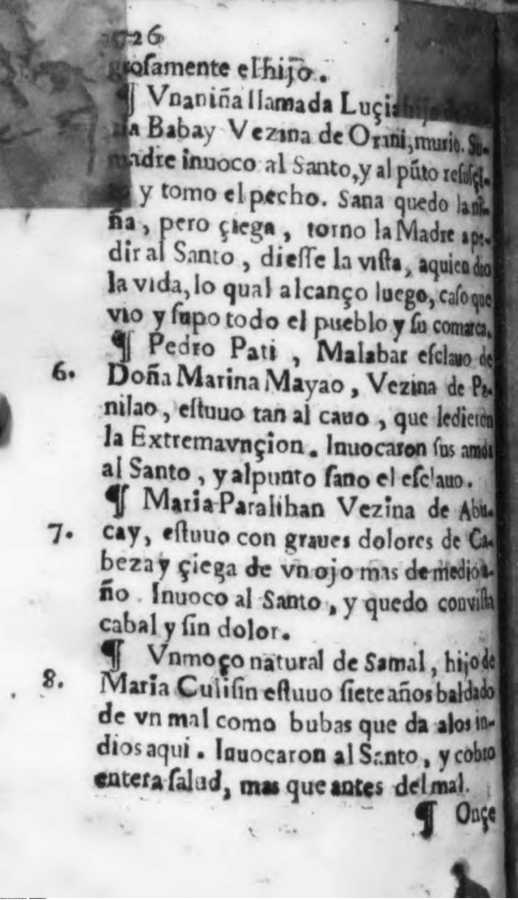 726
grosamente el hijo.
¶ Vna niña llamada Luçia hija de
Babay Vezina de Orani, murio. Su-
madre inuoco al Santo, y al pũto resusçi-
y tomo el pecho. Sana quedo la ni-
ña, pero çiega, torno la Madre a pe-
dir al Santo, diesse la vista, a quien dio
la vida, lo qual alcanço luego, caso que
vio y supo todo el pueblo y su comarca.
¶ Pedro Pati, Malabar esclauo de
6. Doña Marina Mayao, Vezina de Pa-
nilao, estuuo tan al cauo, que le dieron
la Extremavnçion. Inuocaron sus amos
al Santo, y al punto sano el esclauo.
¶ Maria Paralihan Vezina de Abu-
7. cay, estuuo con graues dolores de Ca-
beza y çiega de vn ojo mas de medio a-
ño. Inuoco al Santo, y quedo con vista
cabal y sin dolor.
¶ Vn moço natural de Samal, hijo de
8. Maria Culisin estuuo siete años baldado
de vn mal como bubas que da a los in-
dios aqui. Inuocaron al Santo, y cobro
entera salud, mas que antes del mal.
¶ Onçe